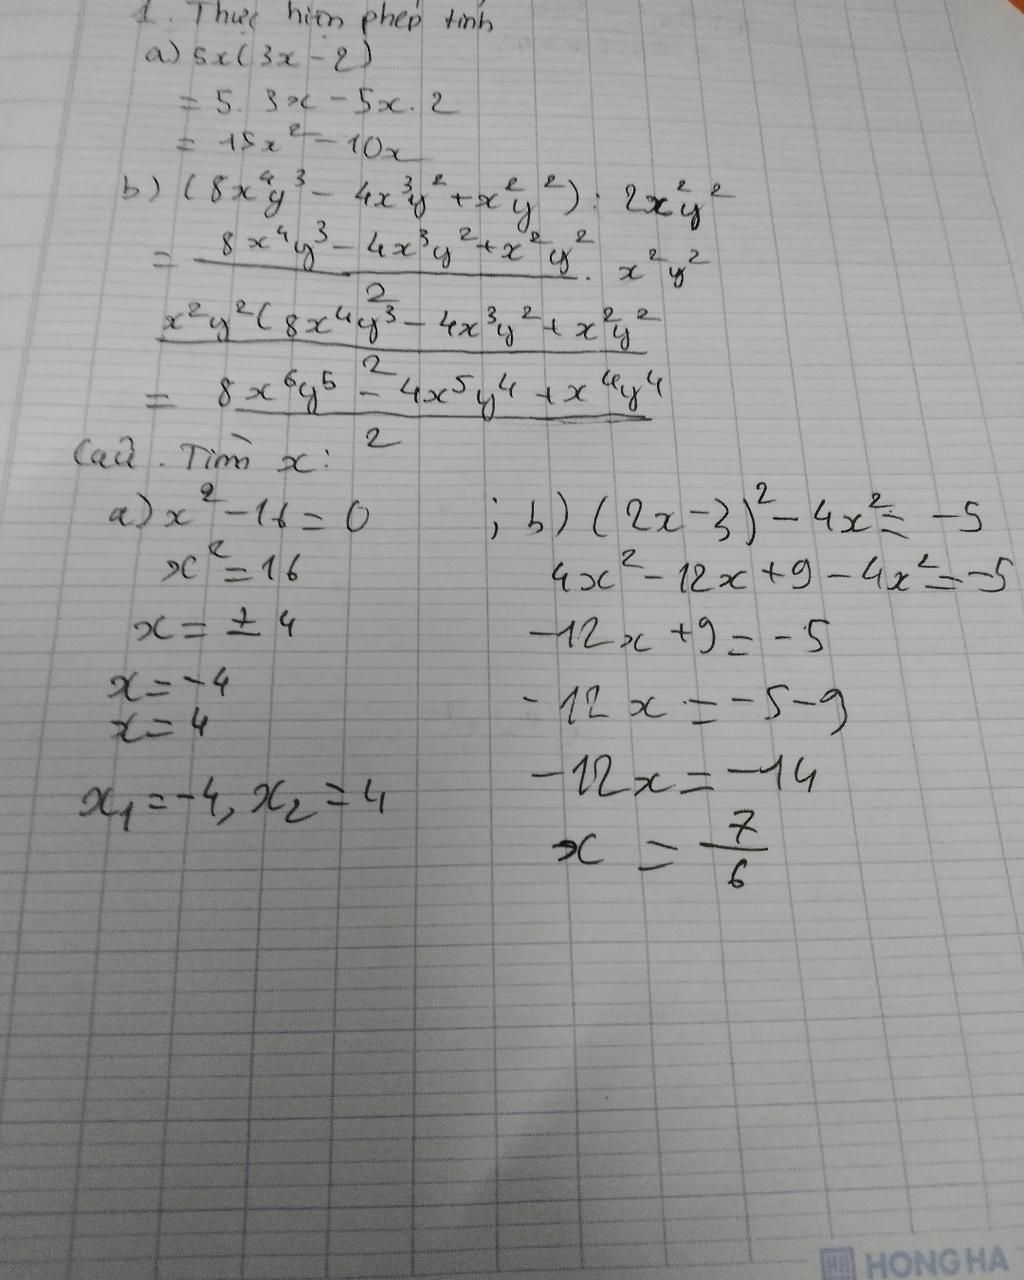 1. Thực hiện phép tính
a) 5x(3x - 2)
= 5. 3x - 5x. 2
= 15x² - 10x
b) (8x⁴y³ - 4x³y² + x²y²) : 2x²y²
= (8x⁴y³ - 4x³y² + x²y²)/2 . x²y²
x²y²(8x⁴y³ - 4x³y² + x²y²/2
= (8x⁶y⁵ - 4x⁵y⁴ + x⁴y⁴)/2
Tìm x:
a) x² - 16 = 0 ; b) (2x - 3)² - 4x² = -5
x² = 16
x = ± 4
x = -4
x = 4
x₁ = -4, x₂ = 4
4x² - 12x + 9 - 4x² = -5
-12x + 9 = -5
-12x = -5-9
-12x = -14
x = 7/6
HONG HA